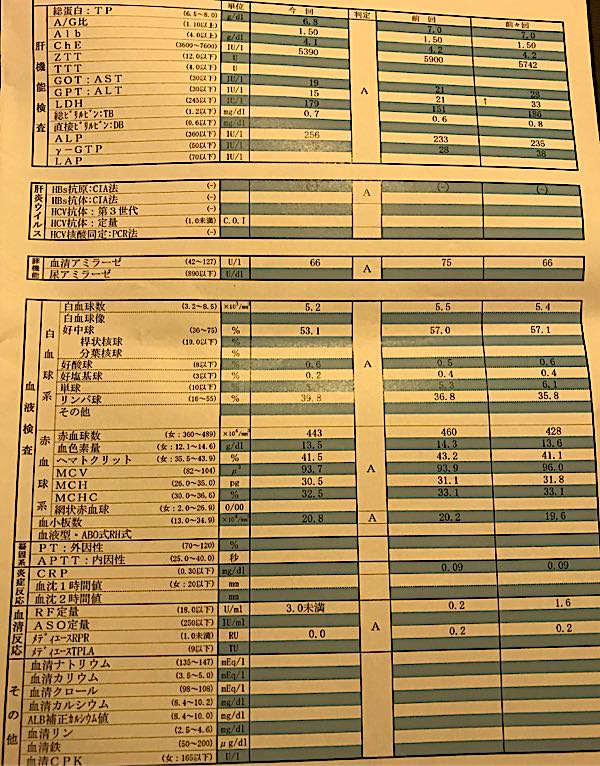 単位 今回 判定 前回 前々回
肝機能検査
総蛋白:TP (6.5~8.0) g/dl 6.8 7.0 7.0
A/G比 (1.10以上) 1.50 1.50 1.50
Alb (4.0以上) g/dl 4.1 4.2 4.2
ChE (3600~7600) IU/l 5390 5900 5742
ZTT (12.0以下) U
TTT (4.0以下) U
GOT:AST (30以下) IU/l 19 21 28
GPT:ALT (30以下) IU/l 15 A 21 33
LDH (245以下) IU/l 179 151 186
総ビリルビン:TB (1.2以下) mg/dl 0.7 0.6 0.8
直接ビリルビン:DB (0.6以下) mg/dl
ALP (360以下) IU/l 256 233 235
γ-GTP (50以下) IU/l 28 38
LAP (70以下) IU/l
肝炎ウイルス
HBs抗原:CIA法 (-) A (-) (-)
HBs抗体:CIA法 (-)
HCV抗体:第3世代 (-)
HCV抗体:定量 (1.0未満) C.O.I
HCV核酸同定:PCR法 (-)
膵機能
血清アミラーゼ (42~127) U/l 66 A 75 66
尿アミラーゼ (890以下) U/dl
血液検査
白血球系
白血球数 (3.2~8.5) ×10³/mm³ 5.2 5.5 5.4
白血球像
好中球 (36~75) % 53.1 57.0 57.1
桿状核球 (19.0以下) %
分葉核球 %
好酸球 (8以下) % 0.6 A 0.5 0.6
好塩基球 (3以下) % 0.2 0.4 0.4
単球 (10以下) % 5.3 6.1
リンパ球 (16~55) % 39.8 36.8 35.8
その他
赤血球系
赤血球数 (女:360~489) ×10⁴/mm³ 443 460 428
血色素量 (女:12.1~14.6) g/dl 13.5 14.3 13.6
ヘマトクリット (女:35.5~43.9) % 41.5 43.2 41.1
MCV (82~104) μ³ 93.7 A 93.9 96.0
MCH (26.0~35.0) pg 30.5 31.1 31.8
MCHC (30.0~36.6) % 32.5 33.1 33.1
網状赤血球 (女:2.0~26.9) 0/00
血小板数 (13.0~34.9) ×10⁴/mm³ 20.8 A 20.2 19.6
血液型・ABO式RH式
凝固系
PT:外因性 (70~120) %
APTT:内因性 (25.0~40.0) 秒
炎症反応
CRP (0.30以下) mg/dl 0.09 0.09
血沈1時間値 (女:20以下) mm
血沈2時間値 mm
血清反応
RF定量 (18.0以下) U/ml 3.0未満 0.2 1.6
ASO定量 (250以下) IU/ml A
メディエースRPR (1.0未満) RU 0.0 0.2 0.2
メディエースTPLA (9以下) TU
その他
血清ナトリウム (135~147) mEq/l
血清カリウム (3.5~5.0) mEq/l
血清クロール (98~108) mEq/l
血清カルシウム (8.4~10.2) mg/dl
ALB補正カルシウム値 (8.4~10.0) mg/dl
血清リン (2.5~4.6) mg/dl
血清鉄 (50~200) μg/dl
血清CPK (女:165以下) U/l